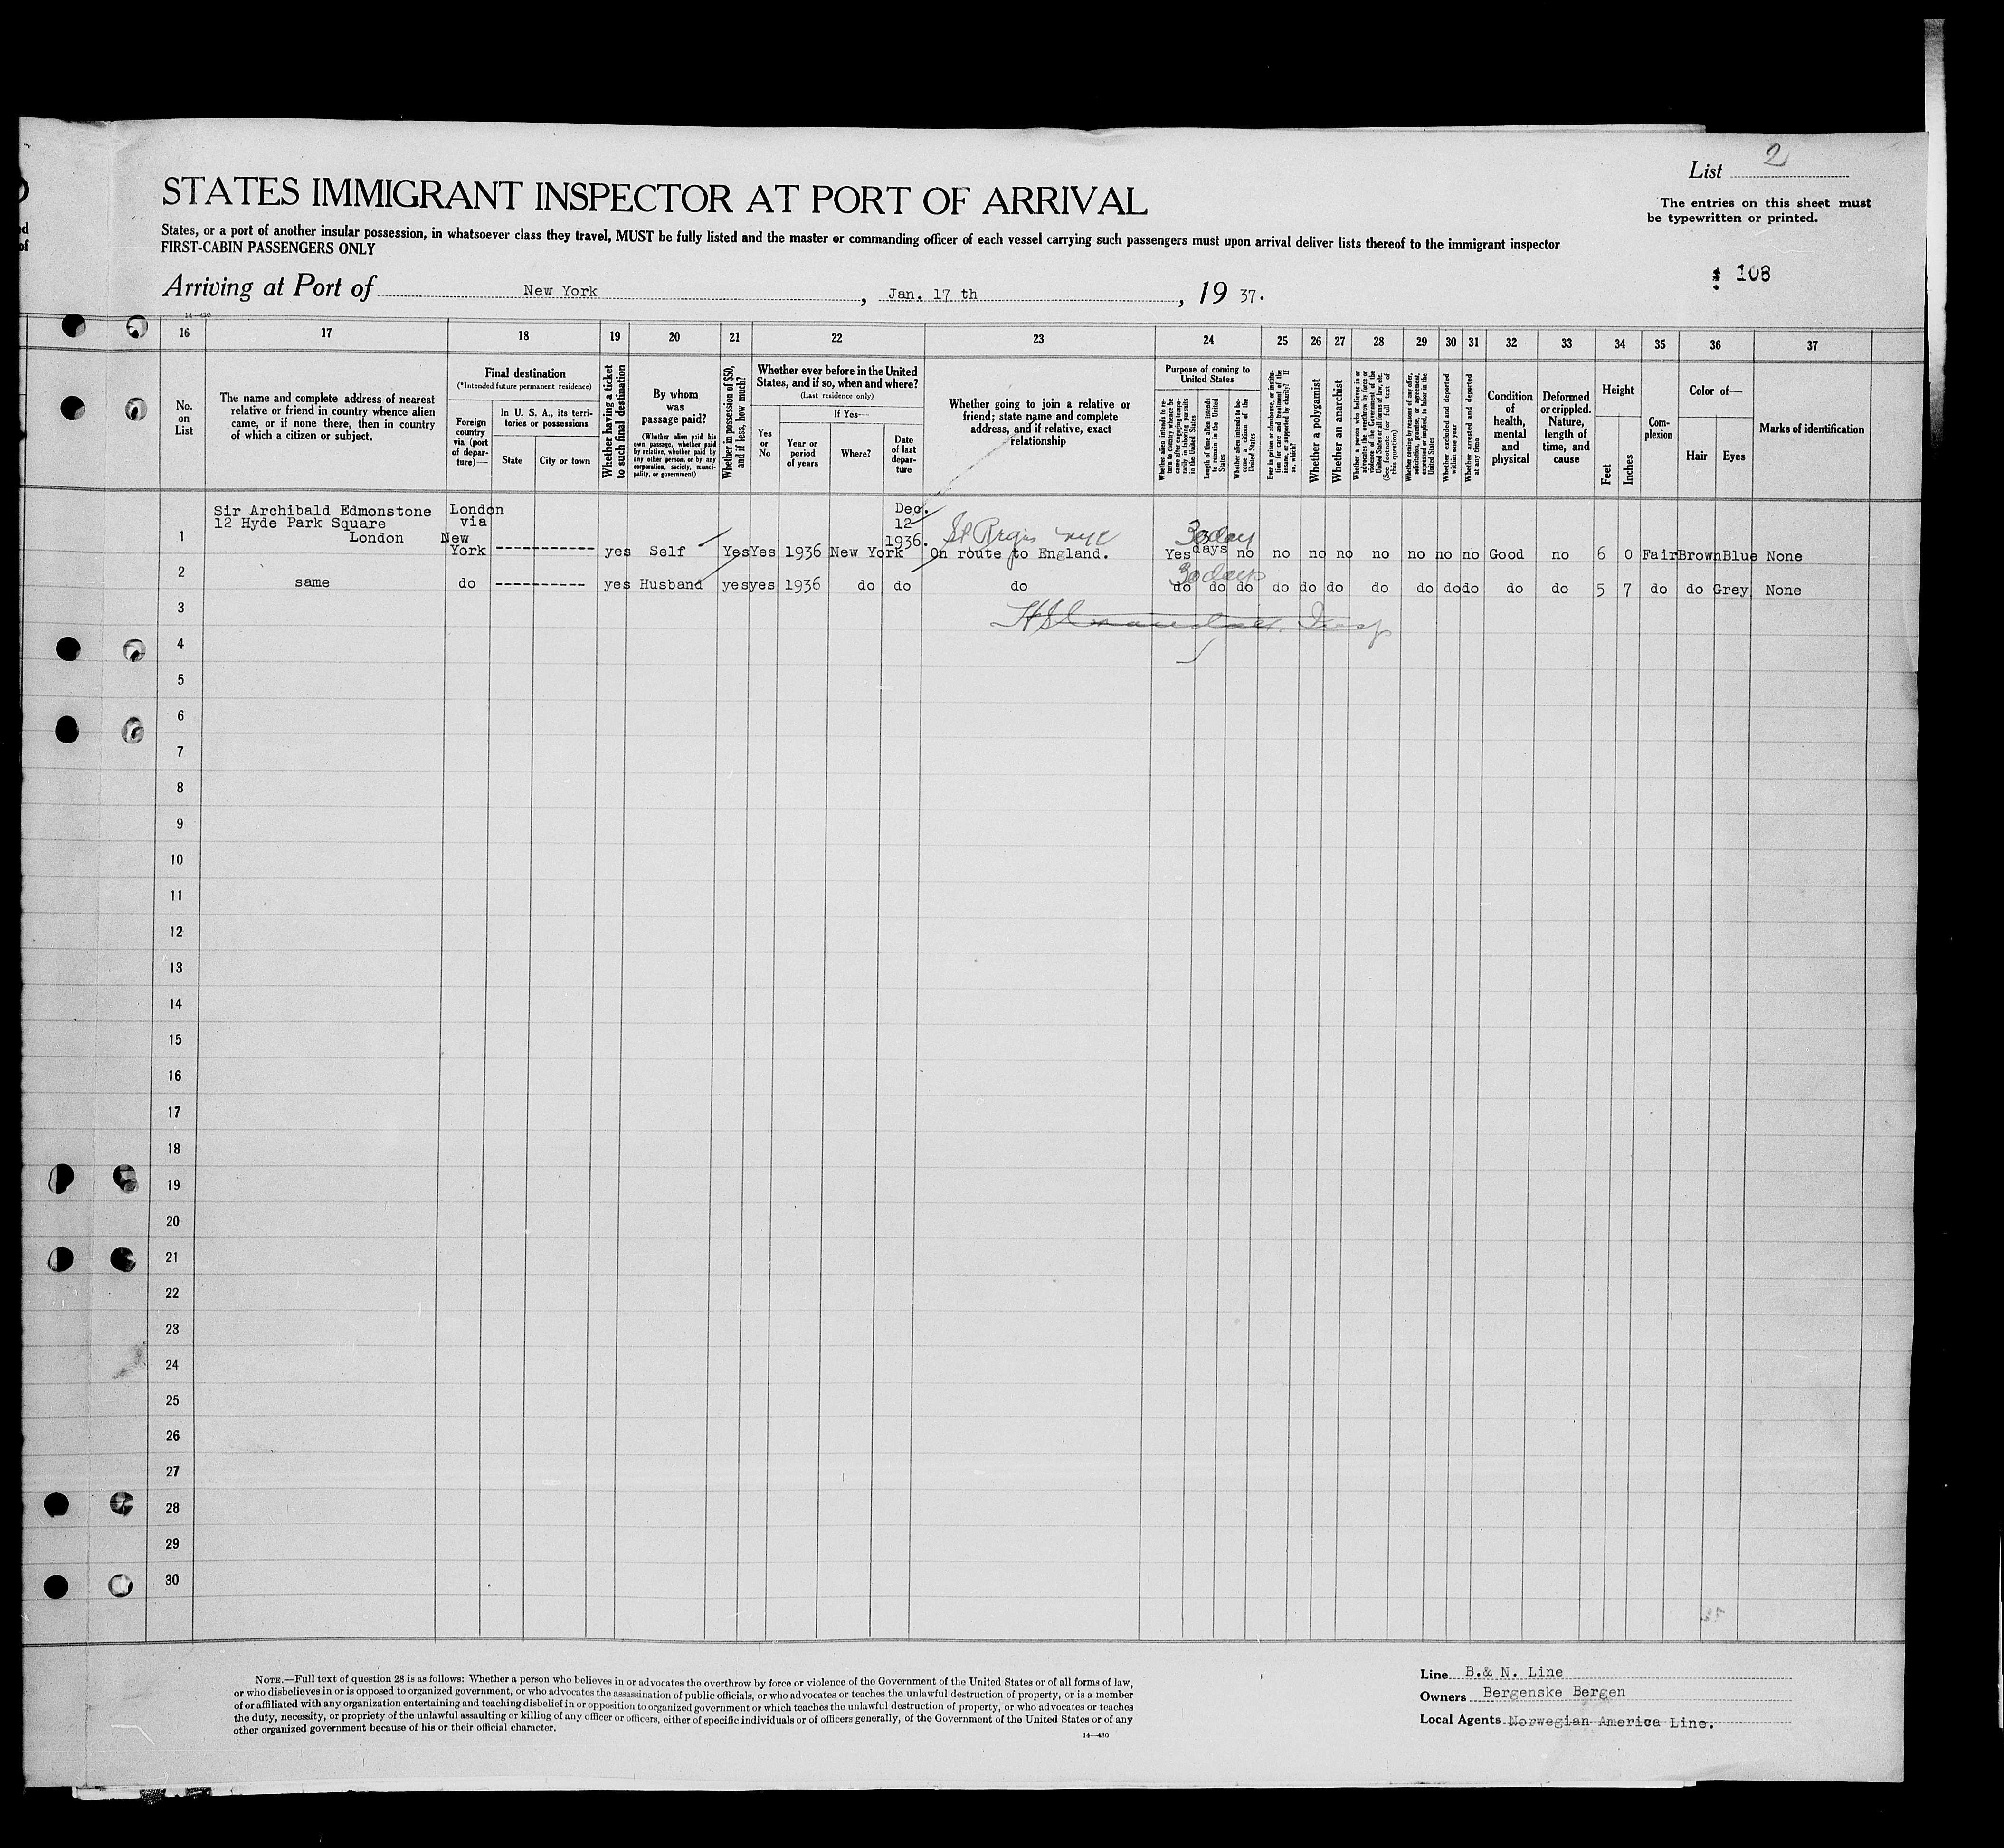 List 2
STATES IMMIGRANT INSPECTOR AT PORT OF ARRIVAL
The entries on this sheet must
be typewritten or printed.
States, or a port of another insular possession, in whatsoever class they travel, MUST be fully listed and the master or commanding officer of each vessel carrying such passengers must upon arrival deliver lists thereof to the immigrant inspector
FIRST-CABIN PASSENGERS ONLY
108
Arriving at Port of New York, Jan. 17 th, 19 37.
14—430
16 17 18 19 20 21 22 23 24 25 26 27 28 29 30 31 32 33 34 35 36 37
No.
on
List
The name and complete address of nearest
relative or friend in country whence alien
came, or if none there, then in country
of which a citizen or subject.
Final destination
(*Intended future permanent residence)
Foreign
country
via (port
of depar-
ture)—
In U. S. A., its terri-
tories or possessions
State
City or town
Whether having a ticket
to such final destination
By whom
was
passage paid?
(Whether alien paid his
own passage, whether paid
by relative, whether paid by
any other person, or by any
corporation, society, munici-
pality, or government)
Whether in possession of $50,
and if less, how much?
Whether ever before in the United
States, and if so, when and where?
(Last residence only)
Yes
or
No
If Yes—
Year or
period
of years
Where?
Date
of last
depar-
ture
Whether going to join a relative or
friend; state name and complete
address, and if relative, exact
relationship
Purpose of coming to
United States
Whether alien intends to re-
turn to country whence he
came after engaging tempo-
rarily in laboring pursuits
in the United States
Length of time alien intends
to remain in the United
States
Whether alien intends to be-
come a citizen of the
United States
Ever in prison or almshouse, or institu-
tion for care and treatment of the
insane, or supported by charity? If
so, which?
Whether a polygamist
Whether an anarchist
Whether a person who believes in or
advocates the overthrow by force or
violence of the Government of the
United States or all forms of law, etc.
(See footnote for full text of
this question)
Whether coming by reasons of any offer,
solicitation, promise, or agreement,
expressed or implied, to labor in the
United States
Whether excluded and deported
within one year
Whether arrested and deported
at any time
Condition
of
health,
mental
and
physical
Deformed
or crippled.
Nature,
length of
time, and
cause
Height
Feet
Inches
Com-
plexion
Color of—
Hair
Eyes
Marks of identification
Sir Archibald Edmonstone London Dec.
12 Hyde Park Square via 12
London New 1936. St Regis NYC 30 day
1 York ------------ yes Self Yes Yes 1936 New York On route to England. Yes days no no no no no no no no Good no 6 0 Fair Brown Blue None
30 days
2 same do ------------ yes Husband yes yes 1936 do do do do do do do do do do do do do do do 5 7 do do Grey None
3
4
5
6
7
8
9
10
11
12
13
14
15
16
17
18
19
20
21
22
23
24
25
26
27
28
29
30
NOTE.—Full text of question 28 is as follows: Whether a person who believes in or advocates the overthrow by force or violence of the Government of the United States or of all forms of law,
or who disbelieves in or is opposed to organized government, or who advocates the assassination of public officials, or who advocates or teaches the unlawful destruction of property, or is a member
of or affiliated with any organization entertaining and teaching disbelief in or opposition to organized government or which teaches the unlawful destruction of property, or who advocates or teaches
the duty, necessity, or propriety of the unlawful assaulting or killing of any officer or officers, either of specific individuals or of officers generally, of the Government of the United States or of any
other organized government because of his or their official character.
14—430
Line B.& N. Line
Owners Bergenske Bergen
Local Agents Norwegian America Line.